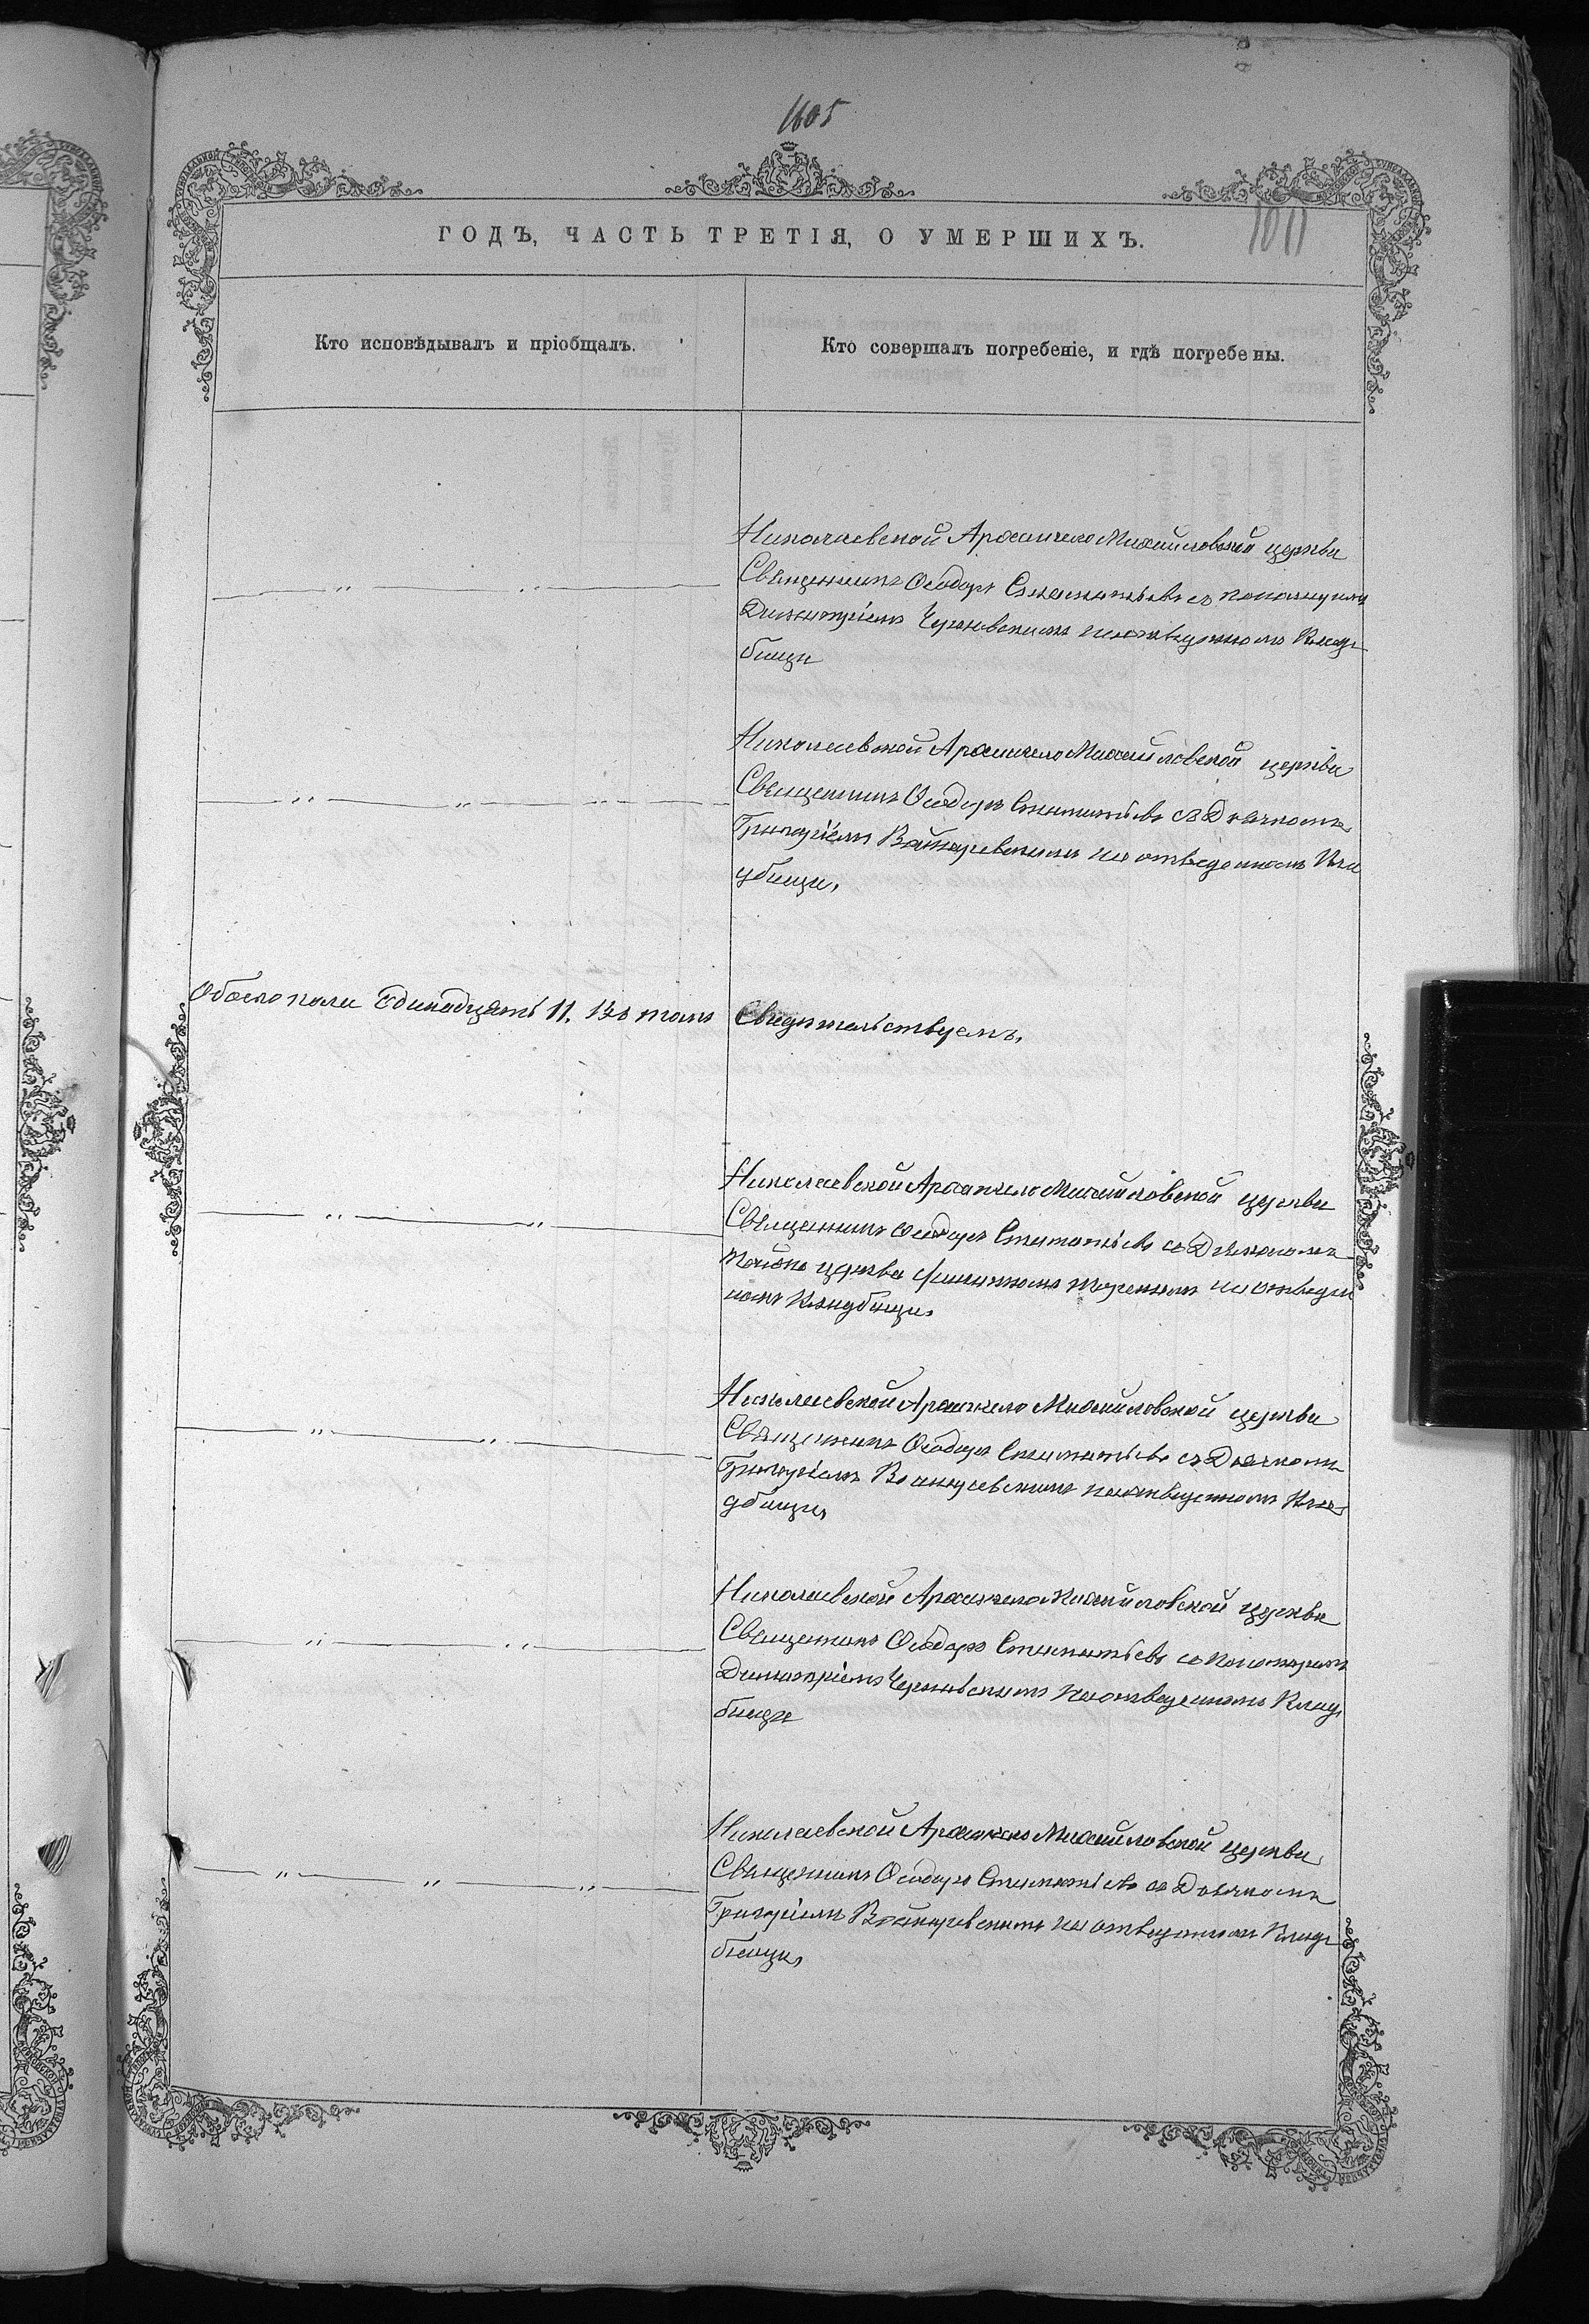 1605
1011
ГОДЪ, ЧАСТЬ ТРЕТІЯ, О УМЕРШИХЪ.
Кто исповѣдывалъ и пріобщалъ.
Кто совершалъ погребеніе, и гдѣ погребены.
Николаевской Архангело Михайловской церкви
Священникъ Ѳеодоръ Стаматьевъ съ пономаремъ
Димитріемъ Черновскимъ на отведенномъ Клад
бищи
Николаевской Архангело Михайловской церкви
Священникъ Ѳеодоръ Стаматьевъ съ Дьячкомъ
Григоріемъ на отведенномъ Кла
дбищи,
Обоего пола Единадцять 11. Въ томъ
Свидѣтельствуемъ,
Николаевской Архангело Михайловской церкви
Священникъ Ѳеодоръ Стаматьевъ съ Діякономъ
церкви на отведен
номъ Кладбищи,
Николаевской Архангело Михайловской церкви
Священникъ Ѳеодоръ Стаматьевъ съ Дьячкомъ
Григоріемъ на отведенномъ Кла
дбищи,
Николаевской Архангело Михайловской церкви
Священникъ Ѳеодоръ Стаматьевъ съ Пономаремъ
Димитріемъ Черновскимъ на отведенномъ Клад
бищи
Николаевской Архангело Михайловской церкви
Священникъ Ѳеодоръ Стаматьевъ съ Дьячкомъ
Григоріемъ на отведенномъ Клад
бищи,